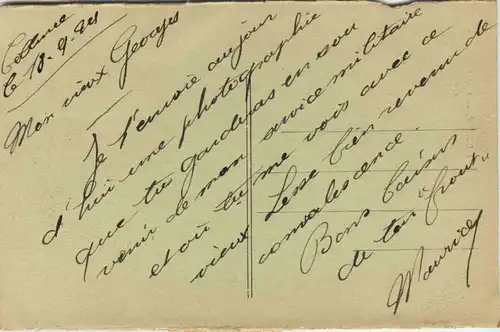 Coblence
le 18-9-24
Mon vieux Georges
Je t'envoie aujour
d'hui une photographie
que tu garderas en sou
venir de mon service militaire
et où tu me vois avec ce
vieux bien revenu de
convalescence.
Bons baisers
de ton "frout"
Maurice